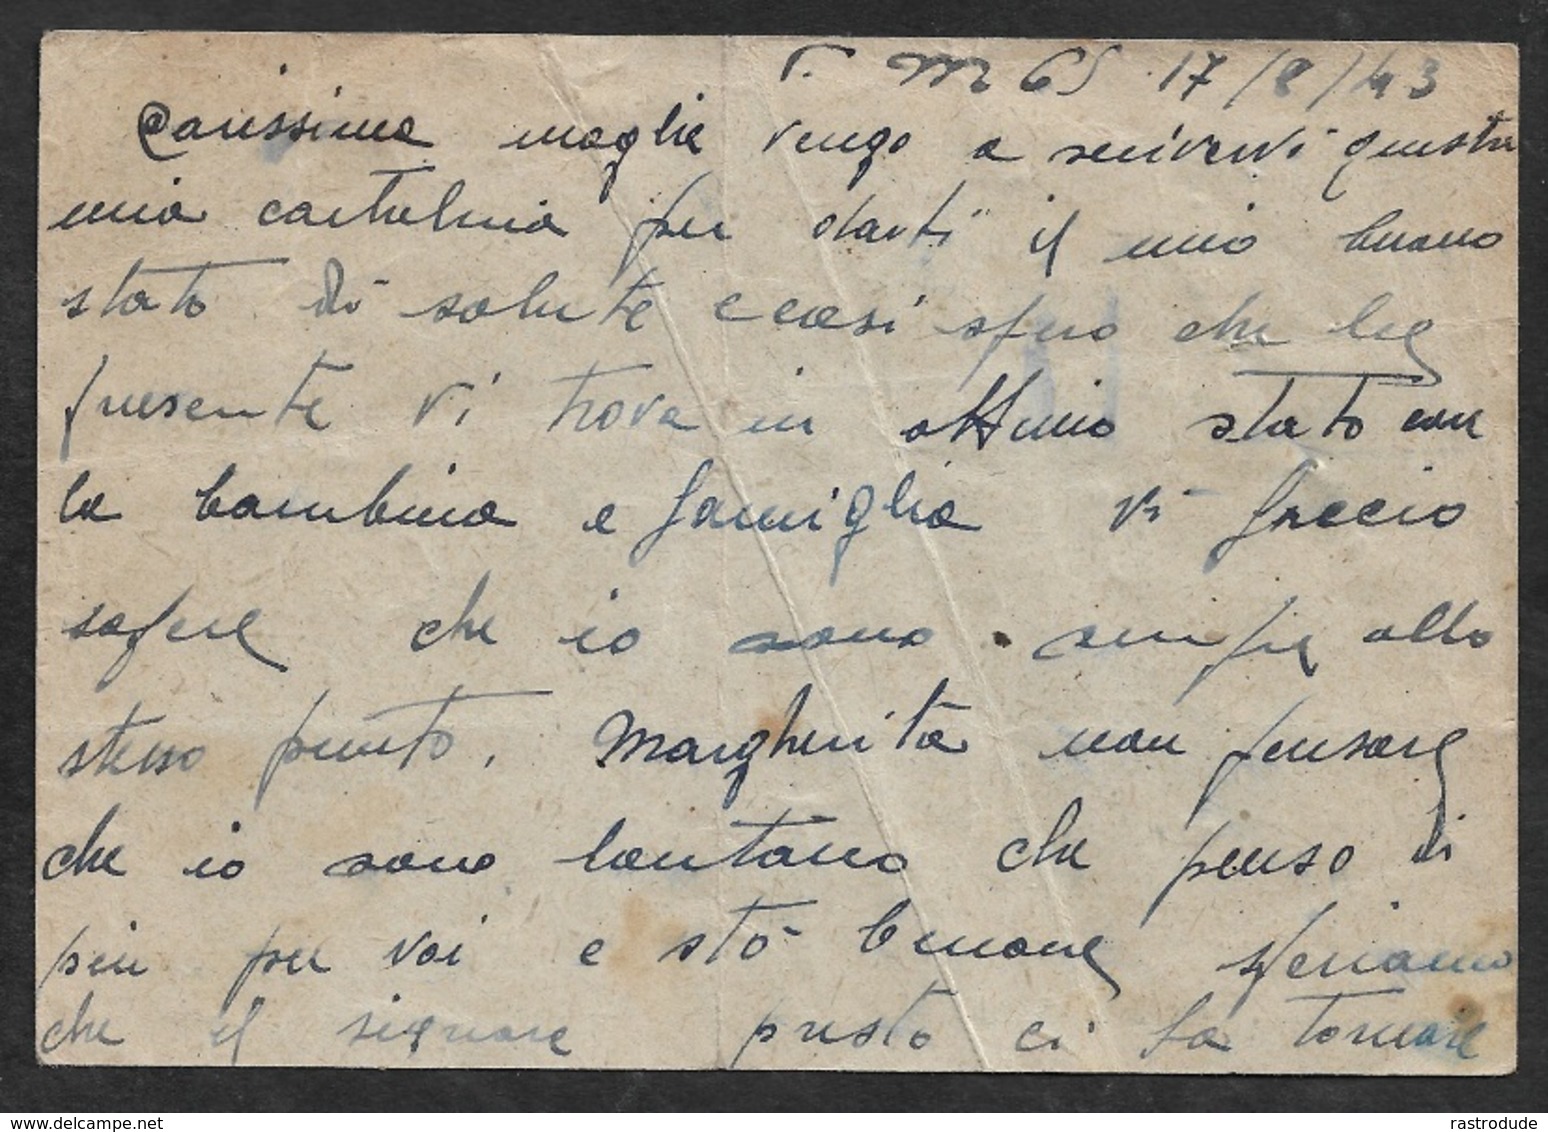 P. M 65 17/8/43
Carissima moglie vengo a scrivervi questa
mia cartolina per darti il mio buono
stato di salute e cosi spero che la
presente vi trova in ottimo stato con
la bambina e famiglia vi faccio
sapere che io sono sempre allo
stesso punto. Margherita non pensare
che io sono lontano che penso di
piu per voi e stò benone speriamo
che il signore presto ci fa tornare
rastrodude